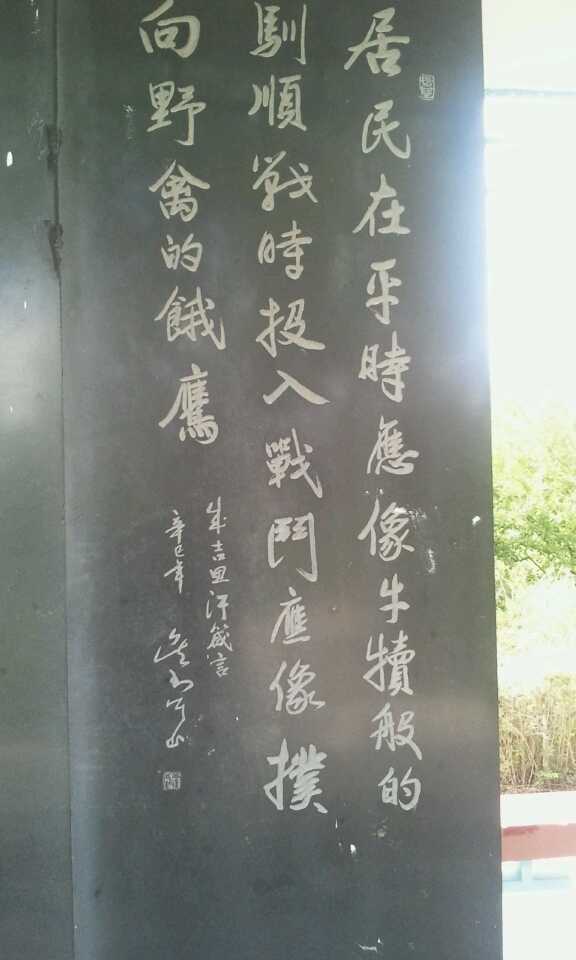 居民在平時應像牛犢般的
馴順戰時投入戰鬥應像撲
向野禽的餓鷹
成吉思汗箴言
辛巳年